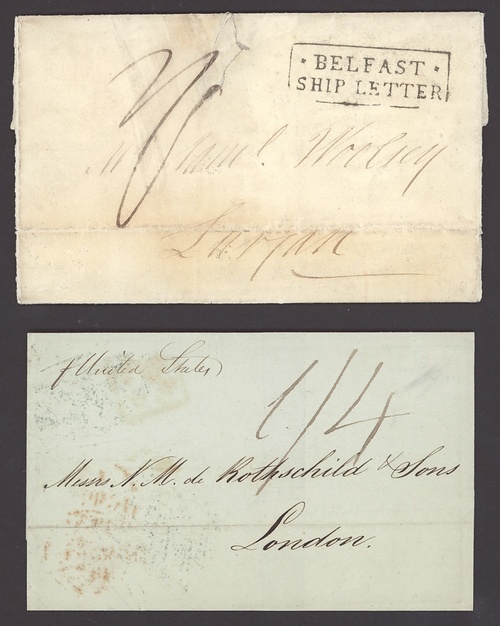 · BELFAST ·
SHIP LETTER
Woolsey
Lurgan
p United States
1/4
Messrs N. M. de Rothschild & Sons
London.